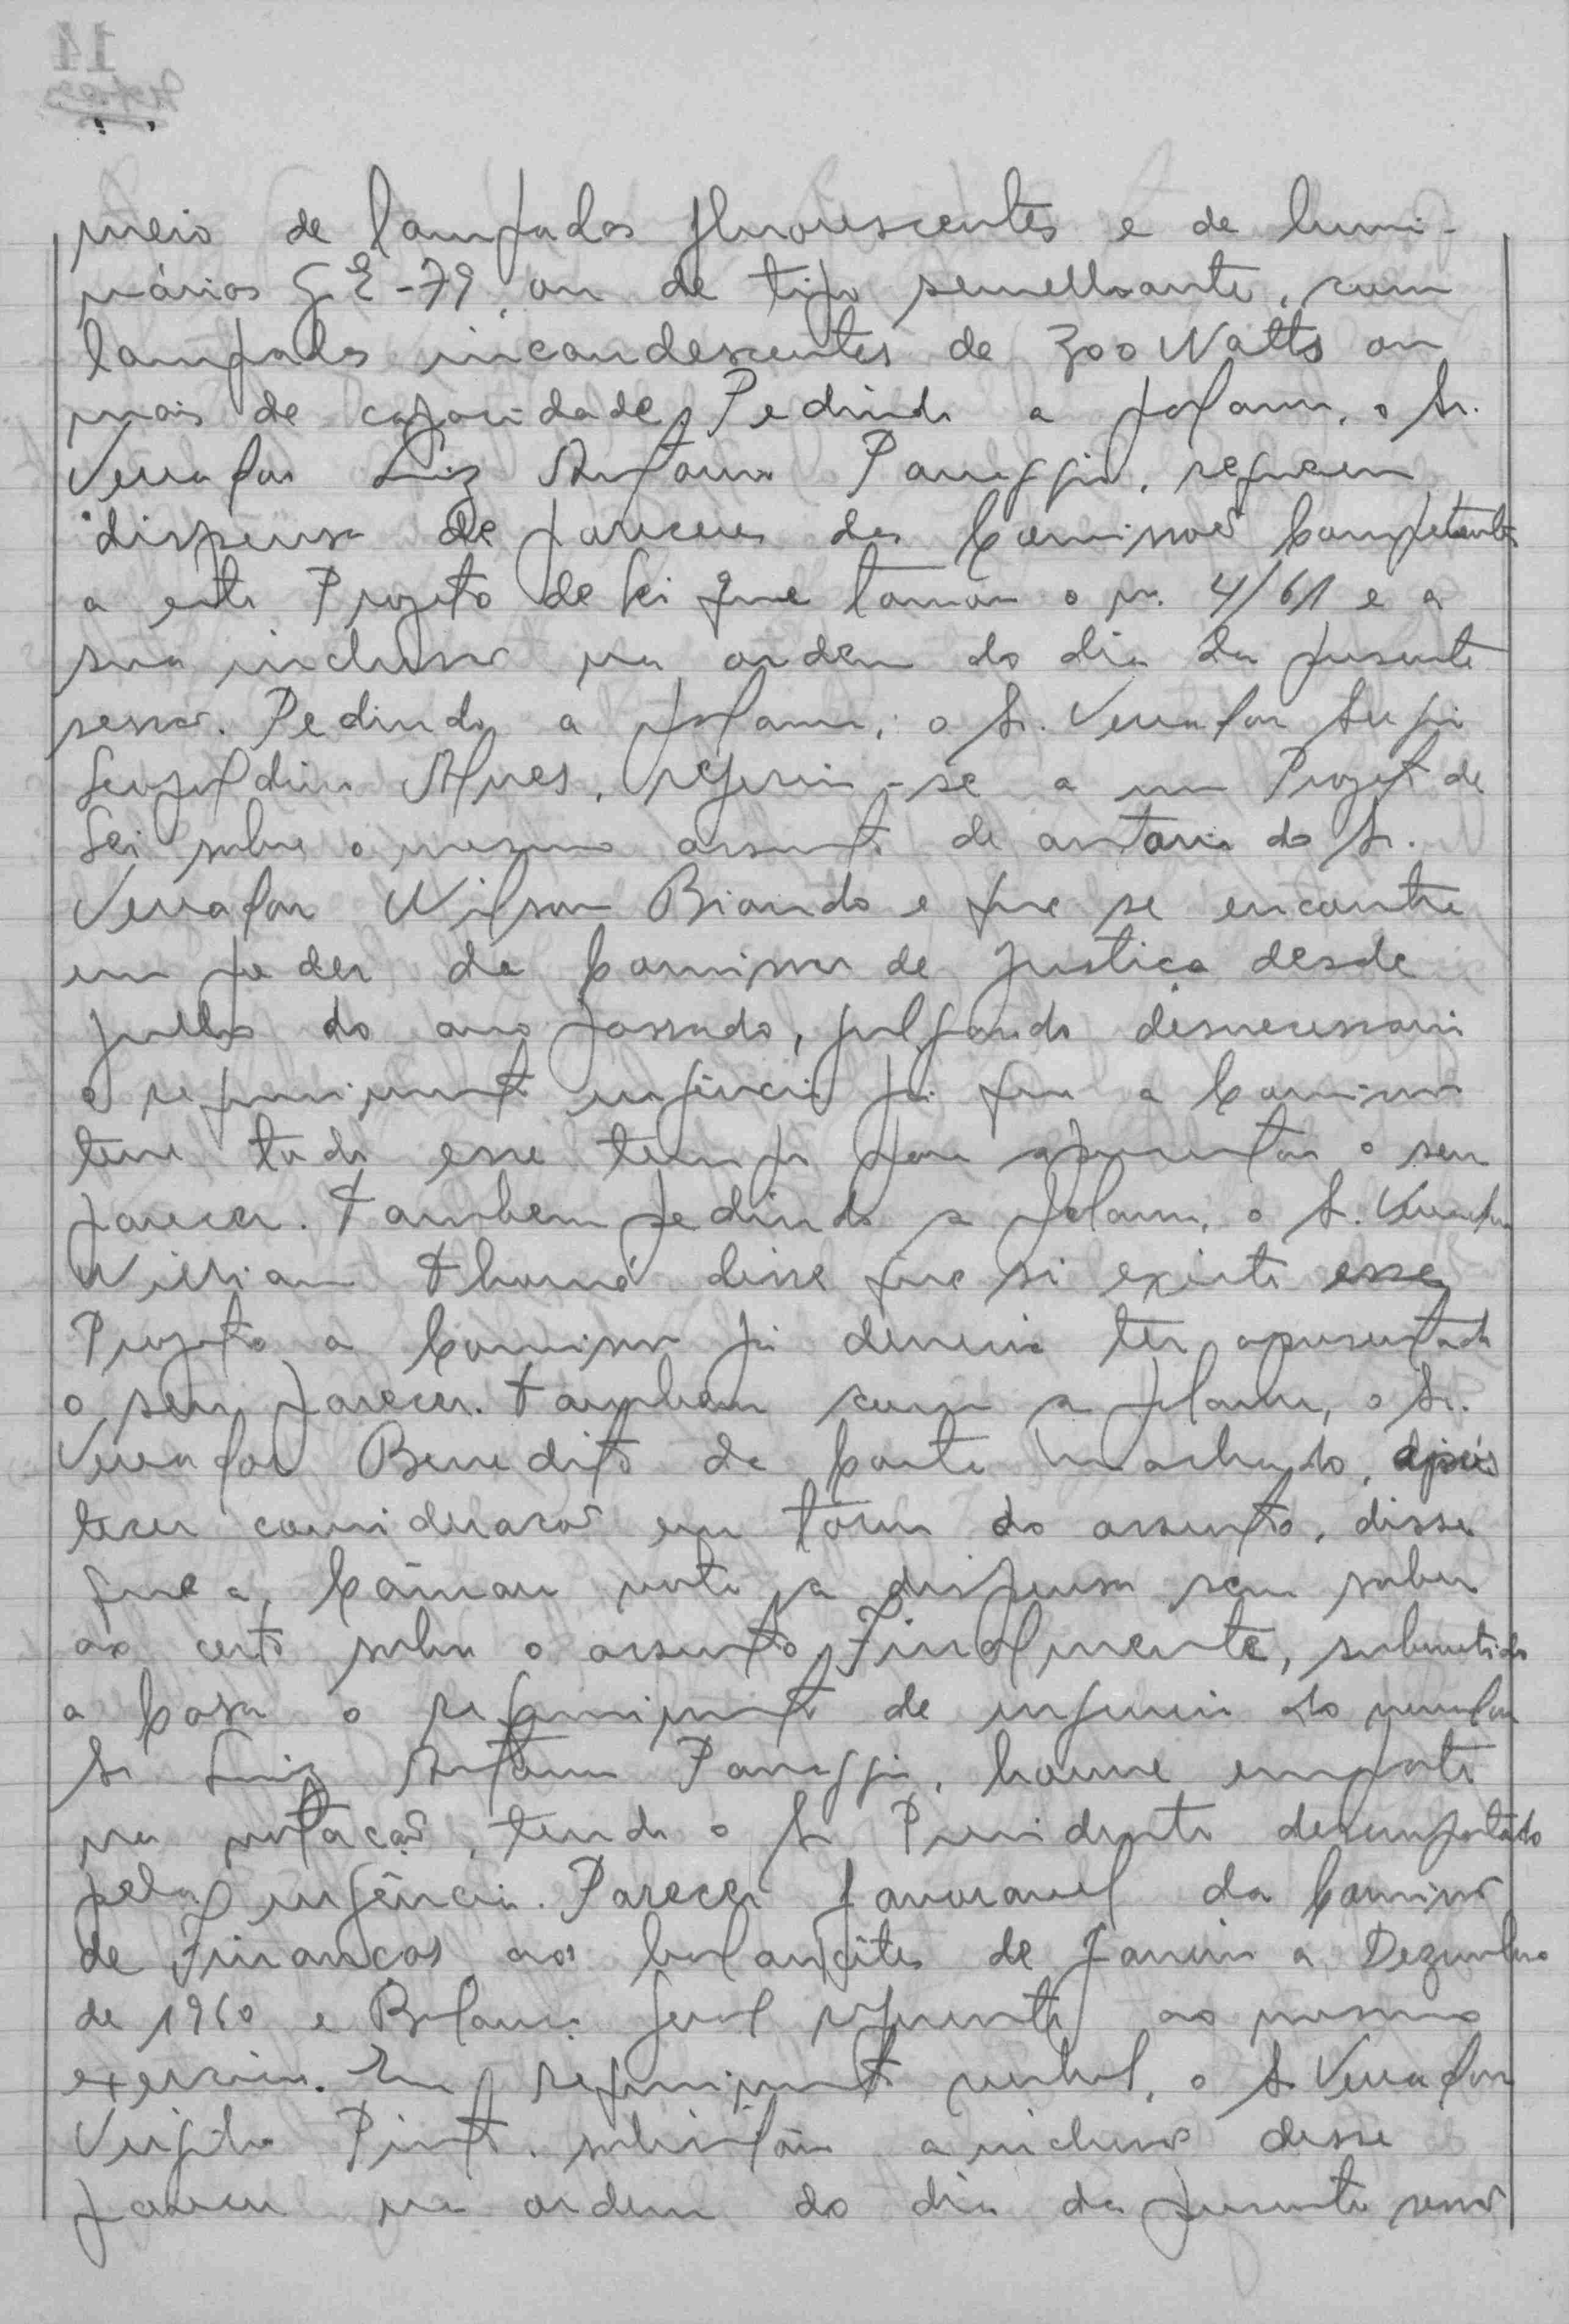 meio de lampadas fluorescentes e de lumi-
nárias G.E-79, ou de tipo semelhante, com
lampadas incandescentes de 300 Watts ou
mais de capacidade. Pedindo a palavra, o Sr.
Vereador Luiz Antonio Panuggio, requereu
dispensa de parecer das Comissões Competentes
a este Projeto de lei que tomou o nr. 4/61 e a
sua inclusão na ordem do dia da presente
sessão. Pedindo a palavra, o Sr. Vereador
Leopoldino Alves, referiu-se a um Projeto de
Lei sobre o mesmo assunto de autoria do Sr.
Vereador Wilson Biondo e que se encontra
em poder da Comissão de Justiça desde
julho do ano passado, julgando desnecessario
o requerimento urgência já que a Comissão
teve todo esse tempo para apresentar o seu
parecer. Tambem pedindo a palavra, o Sr. Vereador
William Thomé disse que si existe esse
Projeto a Comissão já deveria ter apresentado
o seu parecer. Tambem com a palavra, o Sr.
Vereador Benedito da Costa Machado, após
tecer considerações em tôrno do assunto, disse
que a Câmara vote a dispensa sem saber
ao certo sobre o assunto. Finalmente, submetido
a Casa o requerimento de urgencia do vereador
Sr Luiz Antonio Panuggio, houve empate
na votação, tendo o Sr Presidente desempatado
pela urgência. Parecer favoravel da Comissão
de Finanças aos balancêtes de Janeiro a Dezembro
de 1960 e Balanço geral referente ao mesmo
exercicio. Em requerimento verbal, o Sr Vereador
Virgilio Pinto, solicitou a inclusão desse
parecer na ordem do dia da presente sessão